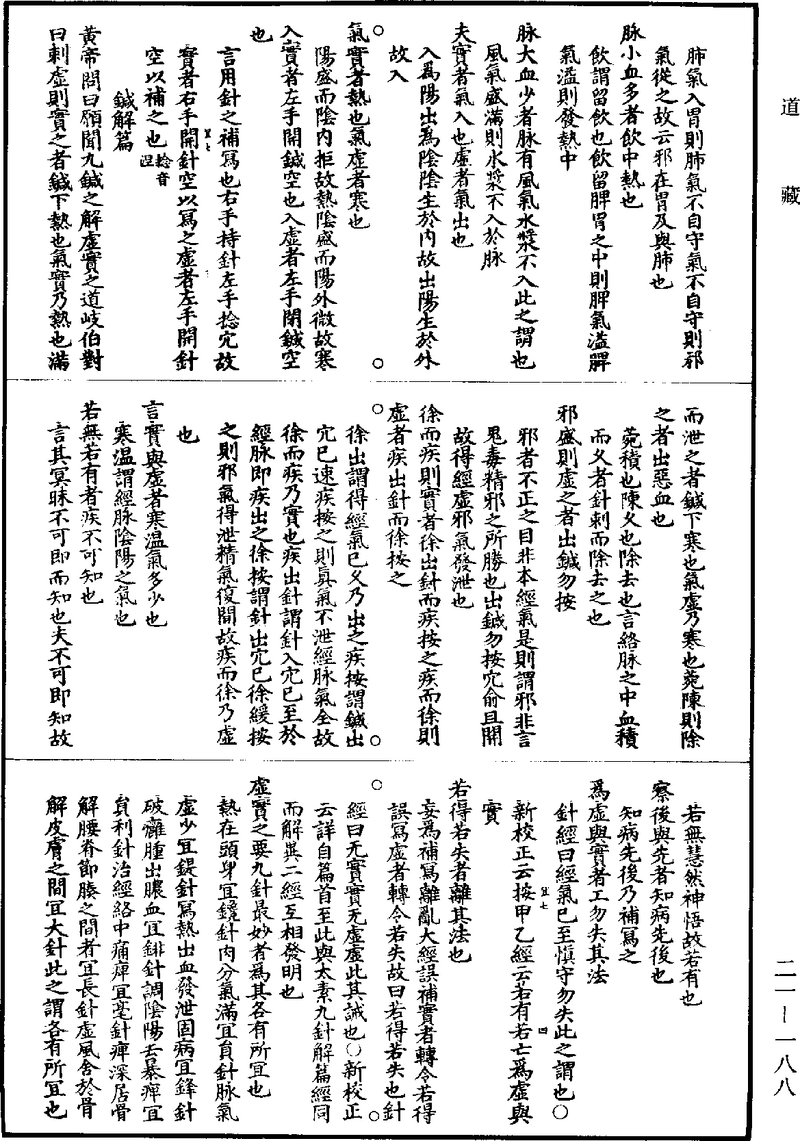 道藏
肺氣入胃則肺氣不自守氣不自守則邪
氣從之故云邪在胃及與肺也
脉小血多者飲中熱也
飲謂留飲也飲留脾胃之中則脾氣溢脾
氣溢則發熱中
脉大血少者脉有風氣水漿不入此之謂也
風氣盛滿則水漿不入於脉
夫實者氣入也虛者氣出也
入爲陽出爲陰陰生於内故出陽生於外
故入
氣實者熱也氣虛者寒也
陽盛而陰内拒故熱陰盛而陽外微故寒
入實者左手開鍼空也入虛者左手閉鍼空
也
言用針之補冩也右手持針左手捻穴故
實者右手開針空以冩之虛者左手開針
空以補之也捻音
涅
鍼解篇
黃帝問曰願聞九鍼之解虛實之道岐伯對
曰刺虛則實之者鍼下熱也氣實乃熱也滿
而泄之者鍼下寒也氣虛乃寒也菀陳則除
之者出惡血也
菀積也陳久也除去也言絡脉之中血積
而久者針刺而除去之也
邪盛則虛之者出鍼勿按
邪者不正之目非本經氣是則謂邪非言
鬼毒精邪之所勝也出鍼勿按穴俞且開
故得經虛邪氣發泄也
徐而疾則實者徐出針而疾按之疾而徐則
虛者疾出針而徐按之
徐出謂得經氣已久乃出之疾按謂鍼出
穴已速疾按之則真氣不泄經脉氣全故
徐而疾乃實也疾出針謂針入穴已至於
經脉即疾出之徐按謂針出穴已徐緩按
之則邪氣得泄精氣復間故疾而徐乃虛
也
言實與虛者寒温氣多少也
寒温謂經脉陰陽之氣也
若無若有者疾不可知也
言其冥昧不可即而知也夫不可即知故
若無慧然神悟故若有也
察後與先者知病先後也
知病先後乃補冩之
爲虛與實者工勿失其法
針經曰經氣已至慎守勿失此之謂也○
新校正云按甲乙經云若有若亡爲虛與
實
若得若失者離其法也
妄爲補冩離亂大經誤補實者轉令若得
誤冩虛者轉令若失故曰若得若失也針
經曰无實實无虛虛此其誡也○新校正
云詳自篇首至此與太素九針解篇經同
而解異二經互相發明也
虛實之要九針最妙者爲其各有所宜也
熱在頭身宜鑱針肉分氣滿宜員針脉氣
虛少宜鍉針冩熱出血發泄固病宜鋒針
破癰腫出膿血宜鈹針調陰陽去暴痺宜
員利針治經絡中痛痺宜毫針痺深居骨
解腰脊節腠之間者宜長針虛風舍於骨
解皮膚之間宜大針此之謂各有所宜也
二一—一八八